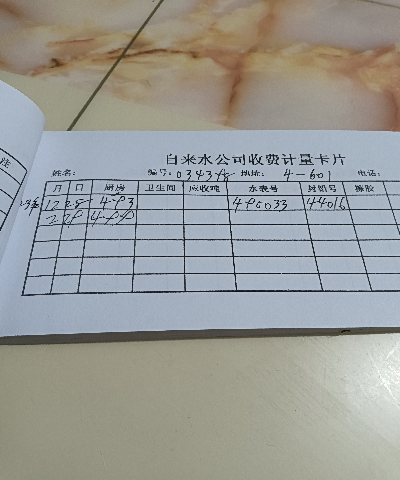 自来水公司收费计量卡片
姓名: 编号: 034348 地址: 4-601 电话:
月 日 厨房 卫生间 应收吨 水表号 封铅号 换胶
12 28 496033 44016
2 28